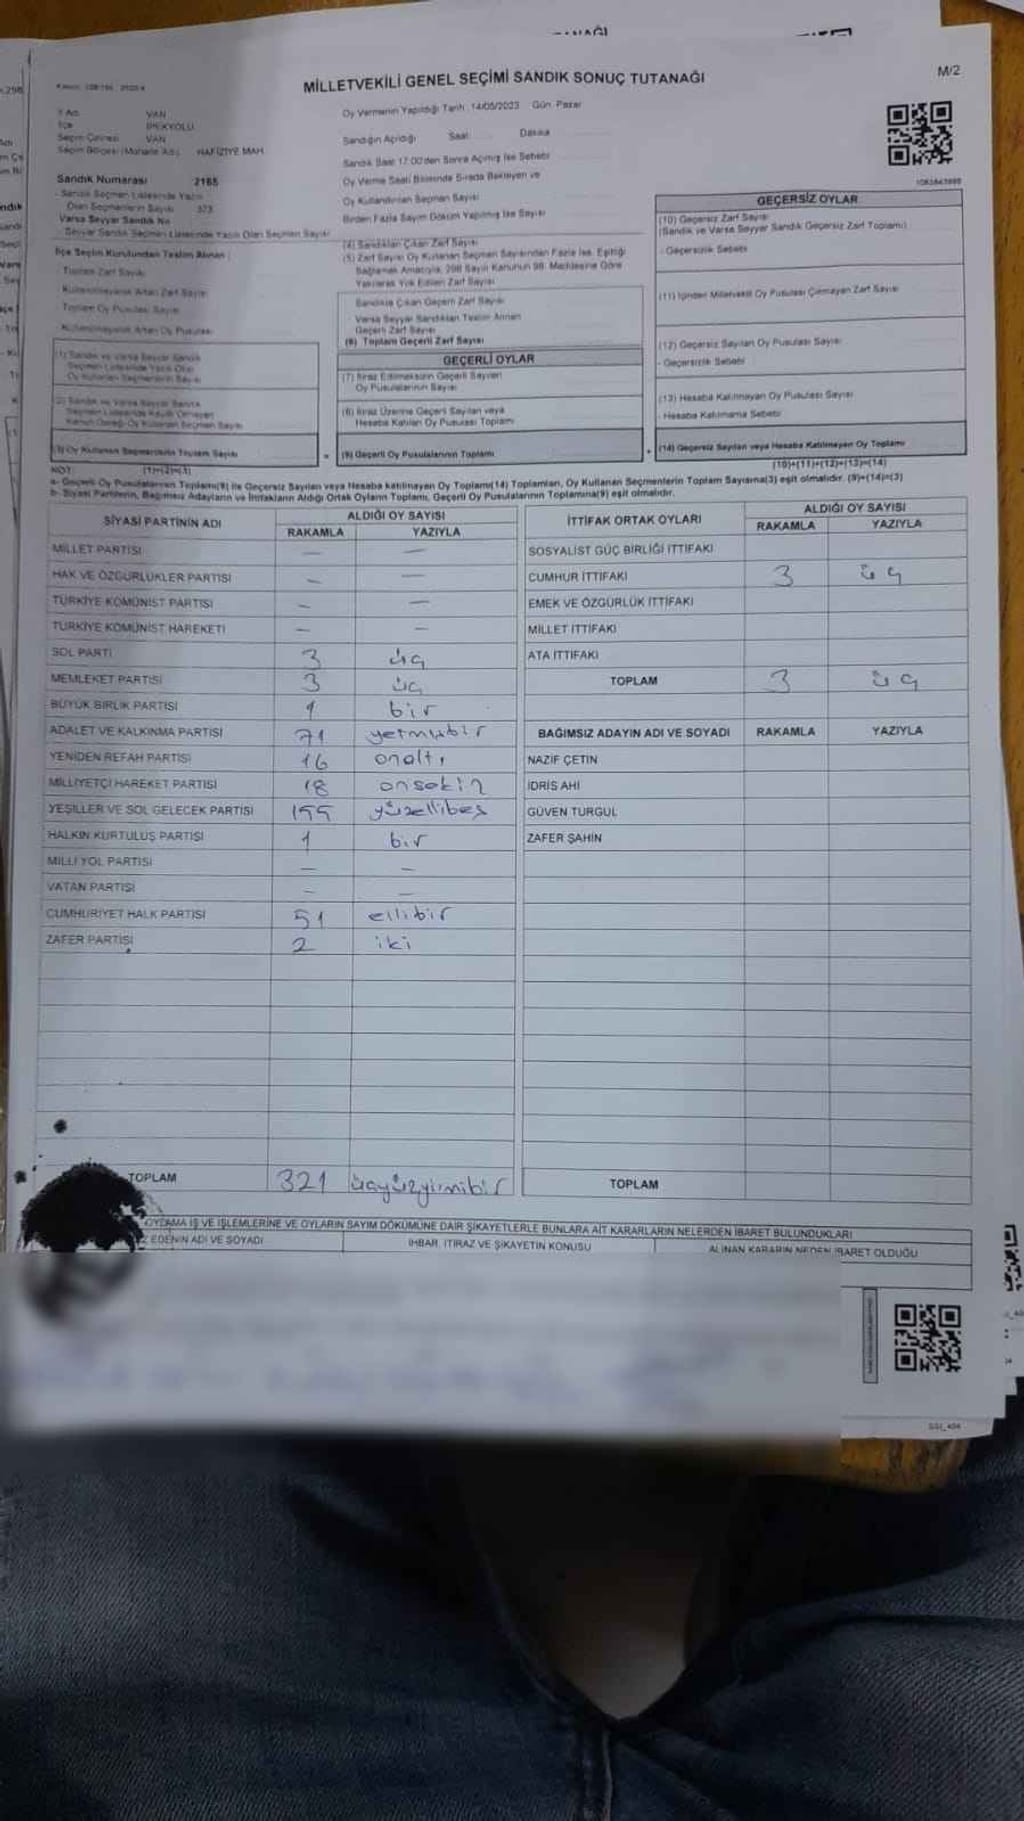 MİLLETVEKİLİ GENEL SEÇİMİ SANDIK SONUÇ TUTANAĞI
M/2
İl Adı VAN
İlçe İPEKYOLU
Seçim Çevresi VAN
Seçim Bölgesi (Mahalle Adı) HAFİZİYE MAH.
Sandık Numarası 2165
Sandık Seçmen Listesinde Yazılı
Olan Seçmenlerin Sayısı 373
Varsa Seyyar Sandık No
Seyyar Sandık Seçmen Listesinde Yazılı Olan Seçmen Sayısı
İlçe Seçim Kurulundan Teslim Alınan
Toplam Zarf Sayısı
Kullanılmayarak Artan Zarf Sayısı
Toplam Oy Pusulası Sayısı
Kullanılmayarak Artan Oy Pusulası
(3) Oy Kullanan Seçmenlerin Toplam Sayısı
Oy Vermenin Yapıldığı Tarih: 14/05/2023 Gün: Pazar
Sandığın Açıldığı Saat Dakika
Sandık Saat 17:00'den Sonra Açılmış İse Sebebi
Oy Verme Saati Bitiminde Sırada Bekleyen ve
Oy Kullandırılan Seçmen Sayısı
Birden Fazla Sayım Döküm Yapılmış İse Sayısı
(4) Sandıktan Çıkan Zarf Sayısı
(5) Zarf Sayısı Oy Kullanan Seçmen Sayısından Fazla İse, Eşitliği
Sağlamak Amacıyla, 298 Sayılı Kanunun 98. Maddesine Göre
Yakılarak Yok Edilen Zarf Sayısı
Sandıkta Çıkan Geçerli Zarf Sayısı
Varsa Seyyar Sandıktan Teslim Alınan
Geçerli Zarf Sayısı
(6) Toplam Geçerli Zarf Sayısı
GEÇERLİ OYLAR
(7) İtiraz Edilmeksizin Geçerli Sayılan
Oy Pusulalarının Sayısı
(8) İtiraz Üzerine Geçerli Sayılan veya
Hesaba Katılan Oy Pusulası Toplamı
(9) Geçerli Oy Pusulalarının Toplamı
GEÇERSİZ OYLAR
(10) Geçersiz Zarf Sayısı
(Sandık ve Varsa Seyyar Sandık Geçersiz Zarf Toplamı)
Geçersizlik Sebebi
(11) İçinden Milletvekili Oy Pusulası Çıkmayan Zarf Sayısı
(12) Geçersiz Sayılan Oy Pusulası Sayısı
- Geçersizlik Sebebi
(13) Hesaba Katılmayan Oy Pusulası Sayısı
- Hesaba Katılmama Sebebi
(14) Geçersiz Sayılan veya Hesaba Katılmayan Oy Toplamı
NOT: (1)+(2)=(3)
(10)+(11)+(12)+(13)=(14)
a- Geçerli Oy Pusulalarının Toplamı(9) ile Geçersiz Sayılan veya Hesaba katılmayan Oy Toplamı(14) Toplamları, Oy Kullanan Seçmenlerin Toplam Sayısına(3) eşit olmalıdır. (9)+(14)=(3)
b- Siyasi Partilerin, Bağımsız Adayların ve İttifakların Aldığı Ortak Oyların Toplamı, Geçerli Oy Pusulalarının Toplamına(9) eşit olmalıdır.
SİYASİ PARTİNİN ADI ALDIĞI OY SAYISI
RAKAMLA YAZIYLA
MİLLET PARTİSİ — —
HAK VE ÖZGÜRLÜKLER PARTİSİ — —
TÜRKİYE KOMÜNİST PARTİSİ — —
TÜRKİYE KOMÜNİST HAREKETİ — —
SOL PARTİ 3 üç
MEMLEKET PARTİSİ 3 üç
BÜYÜK BİRLİK PARTİSİ 1 bir
ADALET VE KALKINMA PARTİSİ 71 yetmişbir
YENİDEN REFAH PARTİSİ 16 onaltı
MİLLİYETÇİ HAREKET PARTİSİ 18 onsekiz
YEŞİLLER VE SOL GELECEK PARTİSİ 155 yüzellibeş
HALKIN KURTULUŞ PARTİSİ 1 bir
MİLLİ YOL PARTİSİ — —
VATAN PARTİSİ — —
CUMHURİYET HALK PARTİSİ 51 ellibir
ZAFER PARTİSİ 2 iki
TOPLAM 321 üçyüzyirmibir
İTTİFAK ORTAK OYLARI ALDIĞI OY SAYISI
RAKAMLA YAZIYLA
SOSYALİST GÜÇ BİRLİĞİ İTTİFAKI
CUMHUR İTTİFAKI 3 üç
EMEK VE ÖZGÜRLÜK İTTİFAKI
MİLLET İTTİFAKI
ATA İTTİFAKI
TOPLAM 3 üç
BAĞIMSIZ ADAYIN ADI VE SOYADI RAKAMLA YAZIYLA
NAZİF ÇETİN
İDRİS AHİ
GÜVEN TURGUL
ZAFER ŞAHİN
TOPLAM
OYLAMA İŞ VE İŞLEMLERİNE VE OYLARIN SAYIM DÖKÜMÜNE DAİR ŞİKAYETLERLE BUNLARA AİT KARARLARIN NELERDEN İBARET BULUNDUKLARI
EDENİN ADI VE SOYADI İHBAR, İTİRAZ VE ŞİKAYETİN KONUSU ALINAN KARARIN NEDEN İBARET OLDUĞU